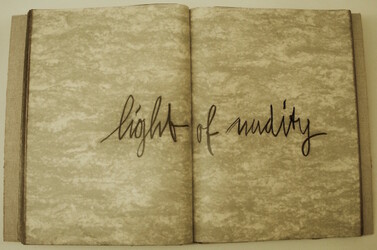 light of nudity